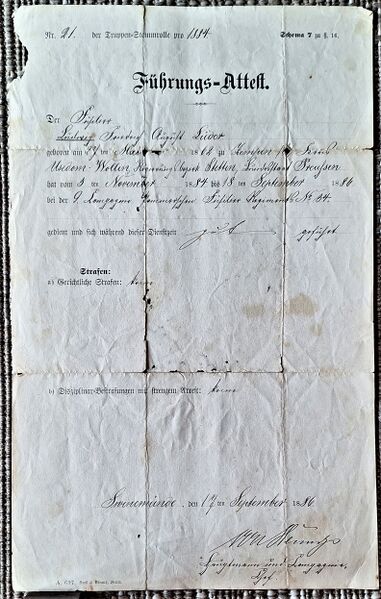 Nr. 21. der Truppen-Stammrolle pro 1884
Schema 7 zu §. 16.
Führungs-Attest.
Der Füsilier
Ludwig August Lüder
geboren am 17ten 1862 zu Zempin Kreis
Usedom-Wollin, Regierungsbezirk Stettin, Bundesstaat Preussen
hat vom 3 ten November 1884 bis 18 ten September 1886
bei der 9. Kompagnie Pommerschen Füsilier Regiments No 34
gedient und sich während dieser Dienstzeit gut geführt
Strafen:
a) Gerichtliche Strafen: keine
b) Disziplinar-Bestrafungen mit strengem Arrest: keine
Swinemünde, den 17 ten September 1886.
Hauptmann und Kompagnie-
Chef.